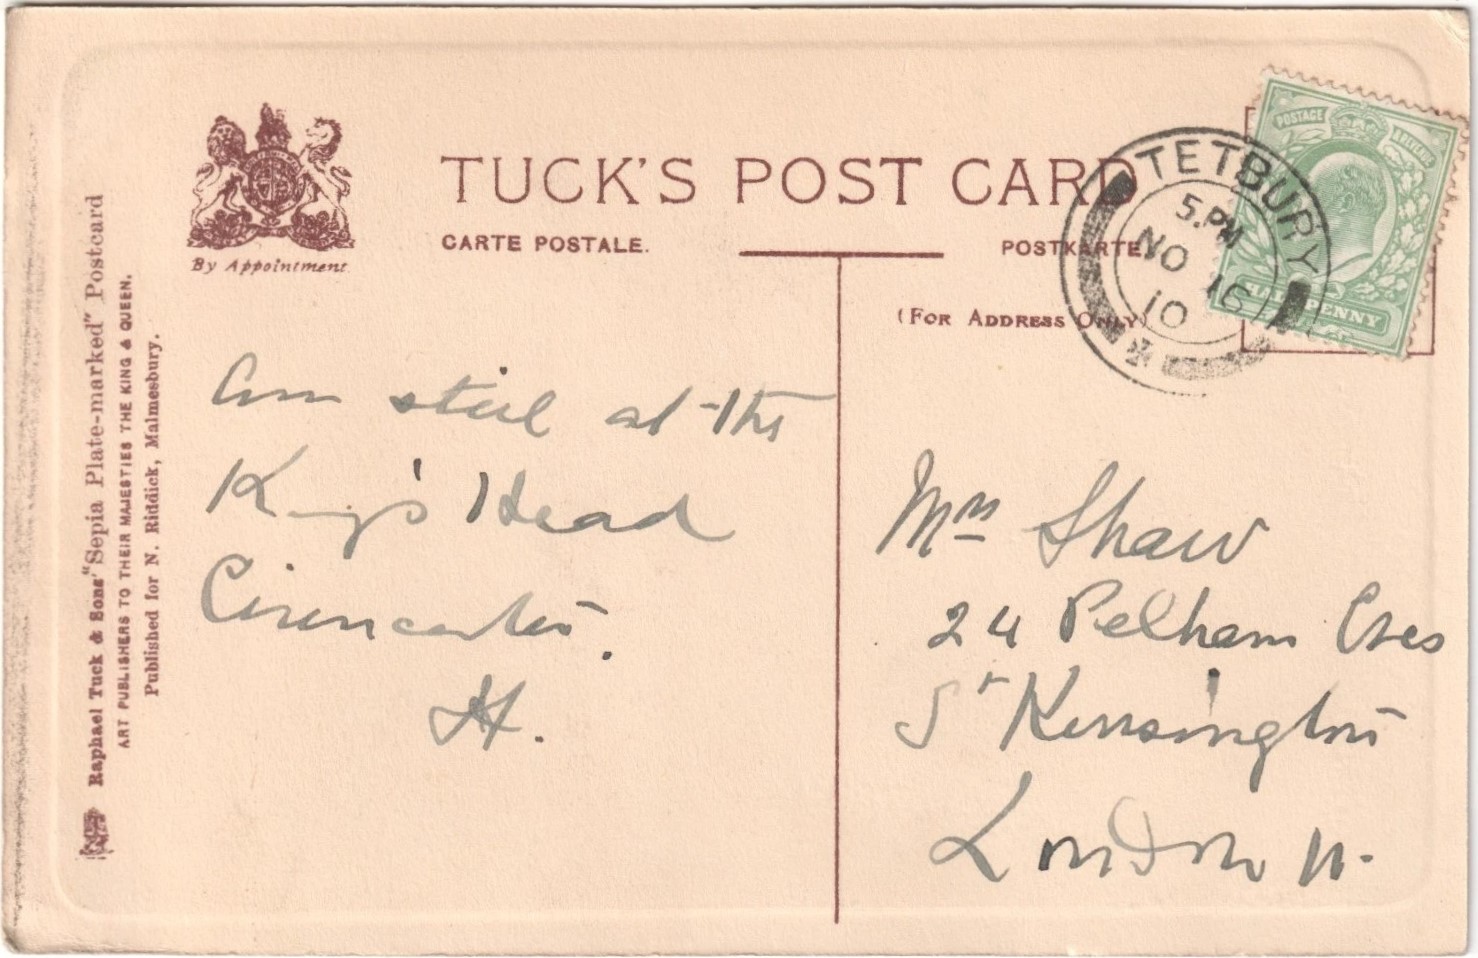 TUCK'S POST CARD
CARTE POSTALE.
POSTKARTE.
(FOR ADDRESS ONLY)
By Appointment
Raphael Tuck & Sons' "Sepia Plate-marked" Postcard
ART PUBLISHERS TO THEIR MAJESTIES THE KING & QUEEN.
Published for N. Riddick, Malmesbury.
TETBURY
5.PM
NO 16
10
POSTAGE & REVENUE
HALFPENNY
Am still at the
King's Head
Cirencester.
H.
Mrs Shaw
24 Pelham Cres
St Kensington
London W.